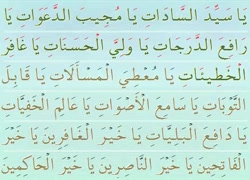 يَا سَيِّدَ السَّادَاتِ يَا مُجِيبَ الدَّعَوَاتِ يَا
رَافِعَ الدَّرَجَاتِ يَا وَلِيَّ الْحَسَنَاتِ يَا غَافِرَ
الْخَطِيئَاتِ يَا مُعْطِيَ الْمَسْأَلَاتِ يَا قَابِلَ
التَّوْبَاتِ يَا سَامِعَ الْأَصْوَاتِ يَا عَالِمَ الْخَفِيَّاتِ
يَا دَافِعَ الْبَلِيَّاتِ يَا خَيْرَ الْغَافِرِينَ يَا خَيْرَ
الْفَاتِحِينَ يَا خَيْرَ النَّاصِرِينَ يَا خَيْرَ الْحَاكِمِينَ